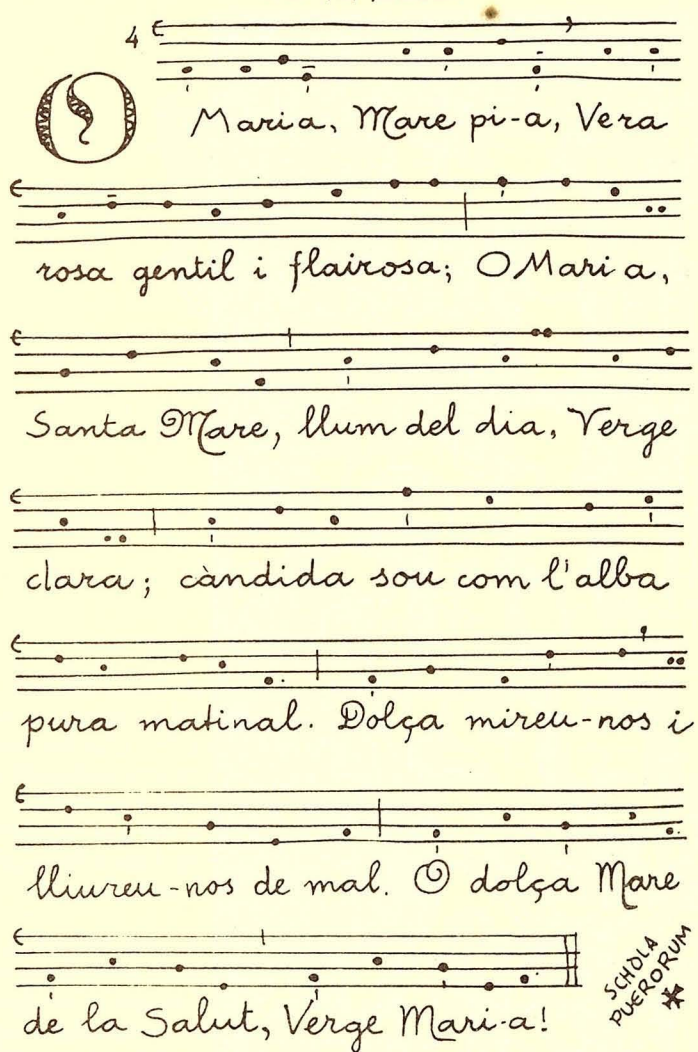 4
O Maria, Mare pi-a, Vera
rosa gentil i flairosa; O Maria,
Santa Mare, llum del dia, Verge
clara; càndida sou com l'alba
pura matinal. Dolça mireu-nos i
lliureu-nos de mal. O dolça Mare
de la Salut, Verge Mari-a!
SCHOLA
PUERORUM